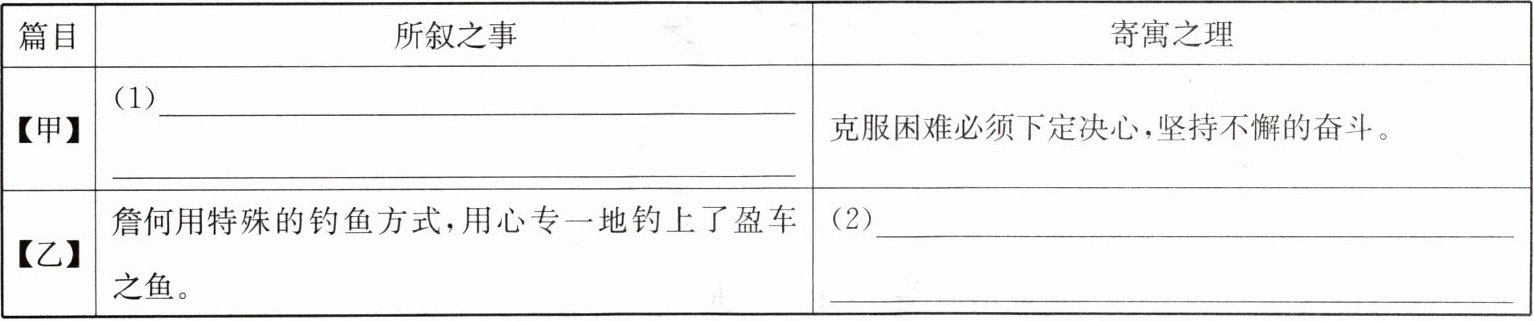 篇目 所叙之事 寄寓之理
【甲】 (1) 克服困难必须下定决心,坚持不懈的奋斗。
【乙】 詹何用特殊的钓鱼方式,用心专一地钓上了盈车 (2)
之鱼。